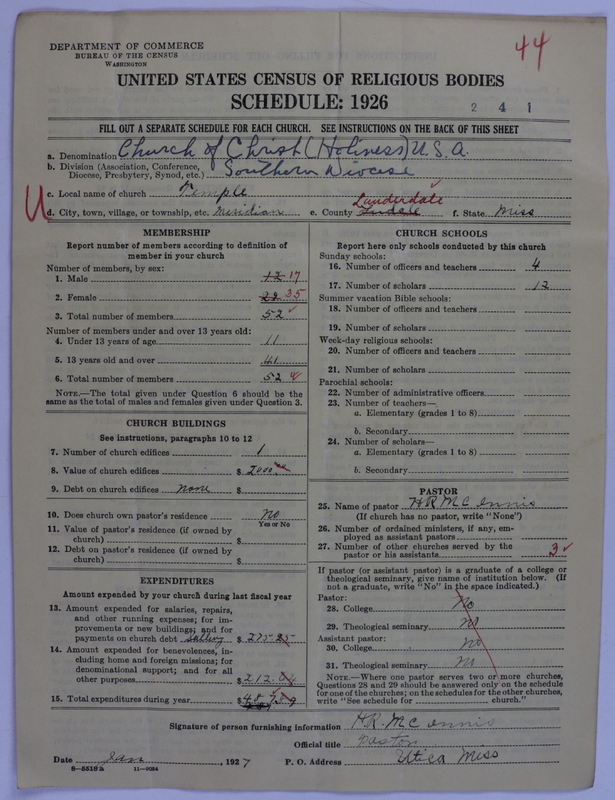 DEPARTMENT OF COMMERCE
BUREAU OF THE CENSUS
WASHINGTON
44
UNITED STATES CENSUS OF RELIGIOUS BODIES
SCHEDULE: 1926
2 4 1
FILL OUT A SEPARATE SCHEDULE FOR EACH CHURCH. SEE INSTRUCTIONS ON THE BACK OF THIS SHEET
a. Denomination Church of Christ (Holiness) U.S.A.
b. Division (Association, Conference, Diocese, Presbytery, Synod, etc.) Southern Diocese
c. Local name of church Temple
Lauderdale
d. City, town, village, or township, etc. Meridian e. County f. State Miss
MEMBERSHIP
Report number of members according to definition of
member in your church
Number of members, by sex:
1. Male 12 17
2. Female 35
3. Total number of members 52
Number of members under and over 13 years old:
4. Under 13 years of age 11
5. 13 years old and over 41
6. Total number of members 52
NOTE.—The total given under Question 6 should be
same as the total of males and females given under Question 3.
CHURCH BUILDINGS
See instructions, paragraphs 10 to 12
7. Number of church edifices 1
8. Value of church edifices $ 2000
9. Debt on church edifices none $
10. Does church own pastor's residence No
Yes or No
11. Value of pastor's residence (if owned by
church) $
12. Debt on pastor's residence (if owned by
church) $
EXPENDITURES
Amount expended by your church during last fiscal year
13. Amount expended for salaries, repairs,
and other running expenses; for im-
provements or new buildings; and for
payments on church debt $ 275
14. Amount expended for benevolences, in-
cluding home and foreign missions; for
denominational support; and for all
other purposes $ 212
15. Total expenditures during year $ 487
CHURCH SCHOOLS
Report here only schools conducted by this church
Sunday schools:
16. Number of officers and teachers 4
17. Number of scholars 12
Summer vacation Bible schools:
18. Number of officers and teachers
19. Number of scholars
Week-day religious schools:
20. Number of officers and teachers
21. Number of scholars
Parochial schools:
22. Number of administrative officers
23. Number of teachers—
a. Elementary (grades 1 to 8)
b. Secondary
24. Number of scholars—
a. Elementary (grades 1 to 8)
b. Secondary
PASTOR
25. Name of pastor H R McInnis
(If church has no pastor, write "None")
26. Number of ordained ministers, if any, em-
ployed as assistant pastors
27. Number of other churches served by the
pastor or his assistants 3
If pastor (or assistant pastor) is a graduate of a college or
theological seminary, give name of institution below. (If
not a graduate, write "No" in the space indicated.)
Pastor:
28. College No
29. Theological seminary No
Assistant pastor:
30. College No
31. Theological seminary
NOTE.—Where one pastor serves two or more churches,
Questions 28 and 29 should be answered only on the schedule
for one of the churches; on the schedules for the other churches,
write "See schedule for church."
Signature of person furnishing information H.R. McInnis
Official title Pastor
Date Jan , 1927 P. O. Address Utica Miss
8—5518a 11—9084